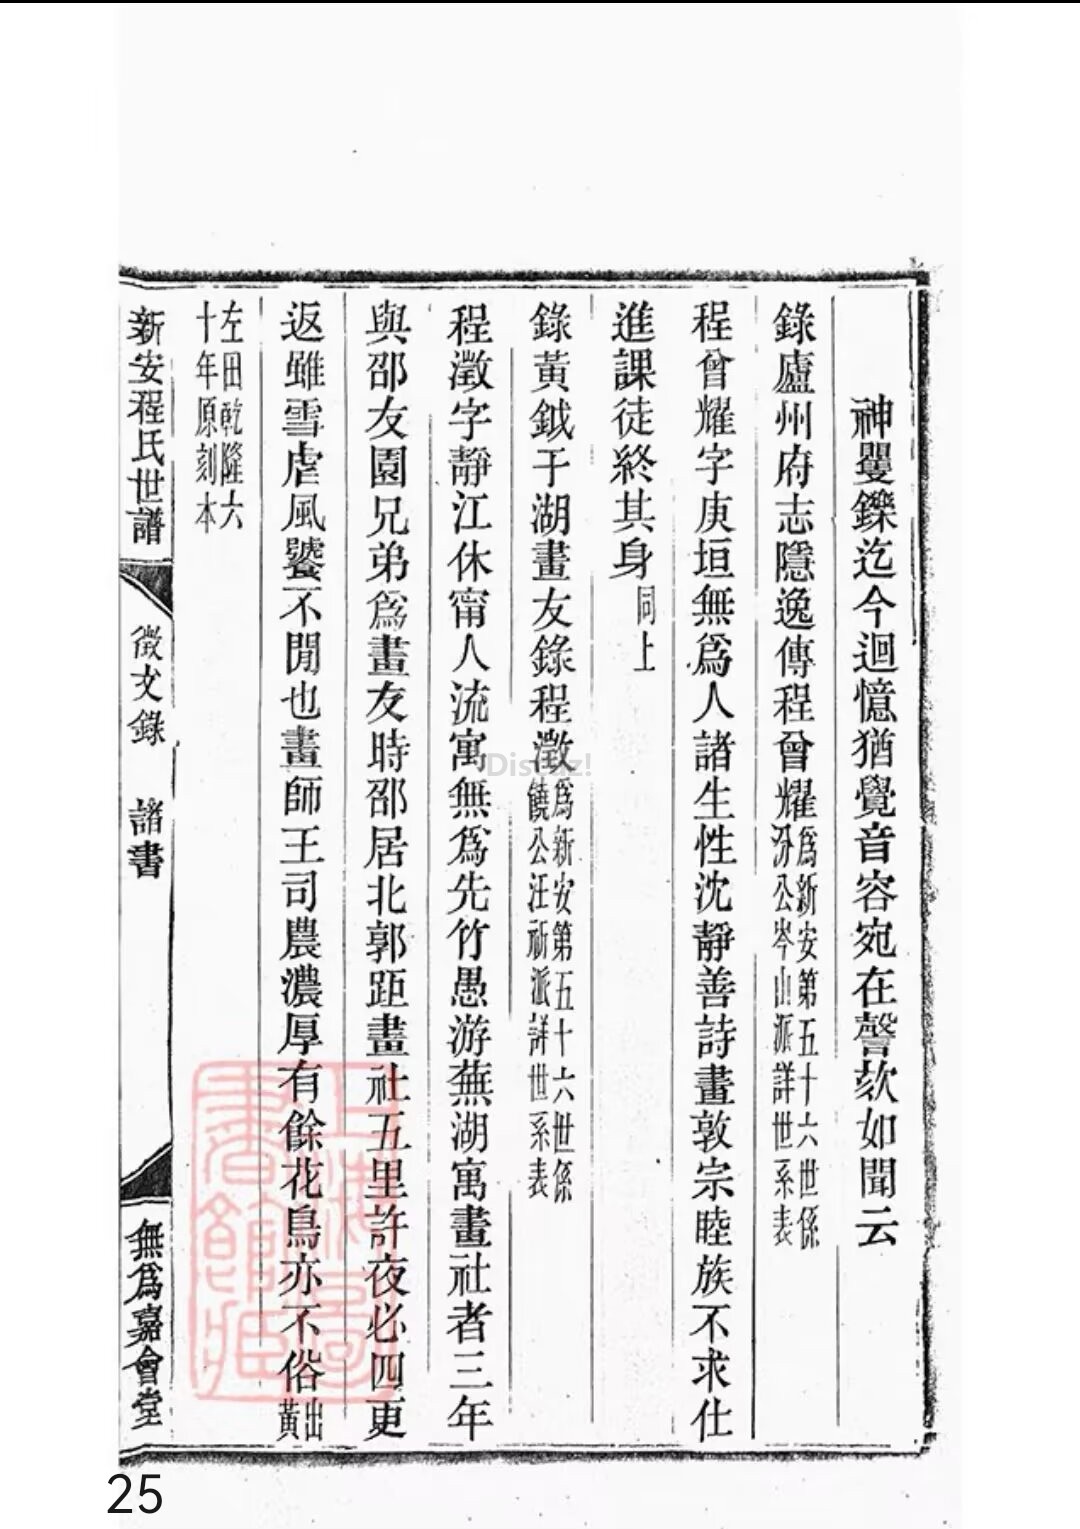 神矍鑠迄今迴憶猶覺音容宛在謦欬如聞云
錄廬州府志隱逸傳程曾耀為新安第五十六世係汾公岑山派詳世系表
程曾耀字庚垣無爲人諸生性沈靜善詩畫敦宗睦族不求仕
進課徒終其身同上
錄黃鉞于湖畫友錄程澂為新安第五十六世係饒公汪祈派詳世系表
程澂字靜江休甯人流寓無爲先竹愚游蕪湖寓畫社者三年
與邵友園兄弟爲畫友時邵居北郭距畫社五里許夜必四更
返雖雪虐風饕不閒也畫師王司農濃厚有餘花鳥亦不俗出黃
左田乾隆六十年原刻本
新安程氏世譜 徵文錄 諸書 無爲嘉會堂
上海圖書館藏
Discuz!
25